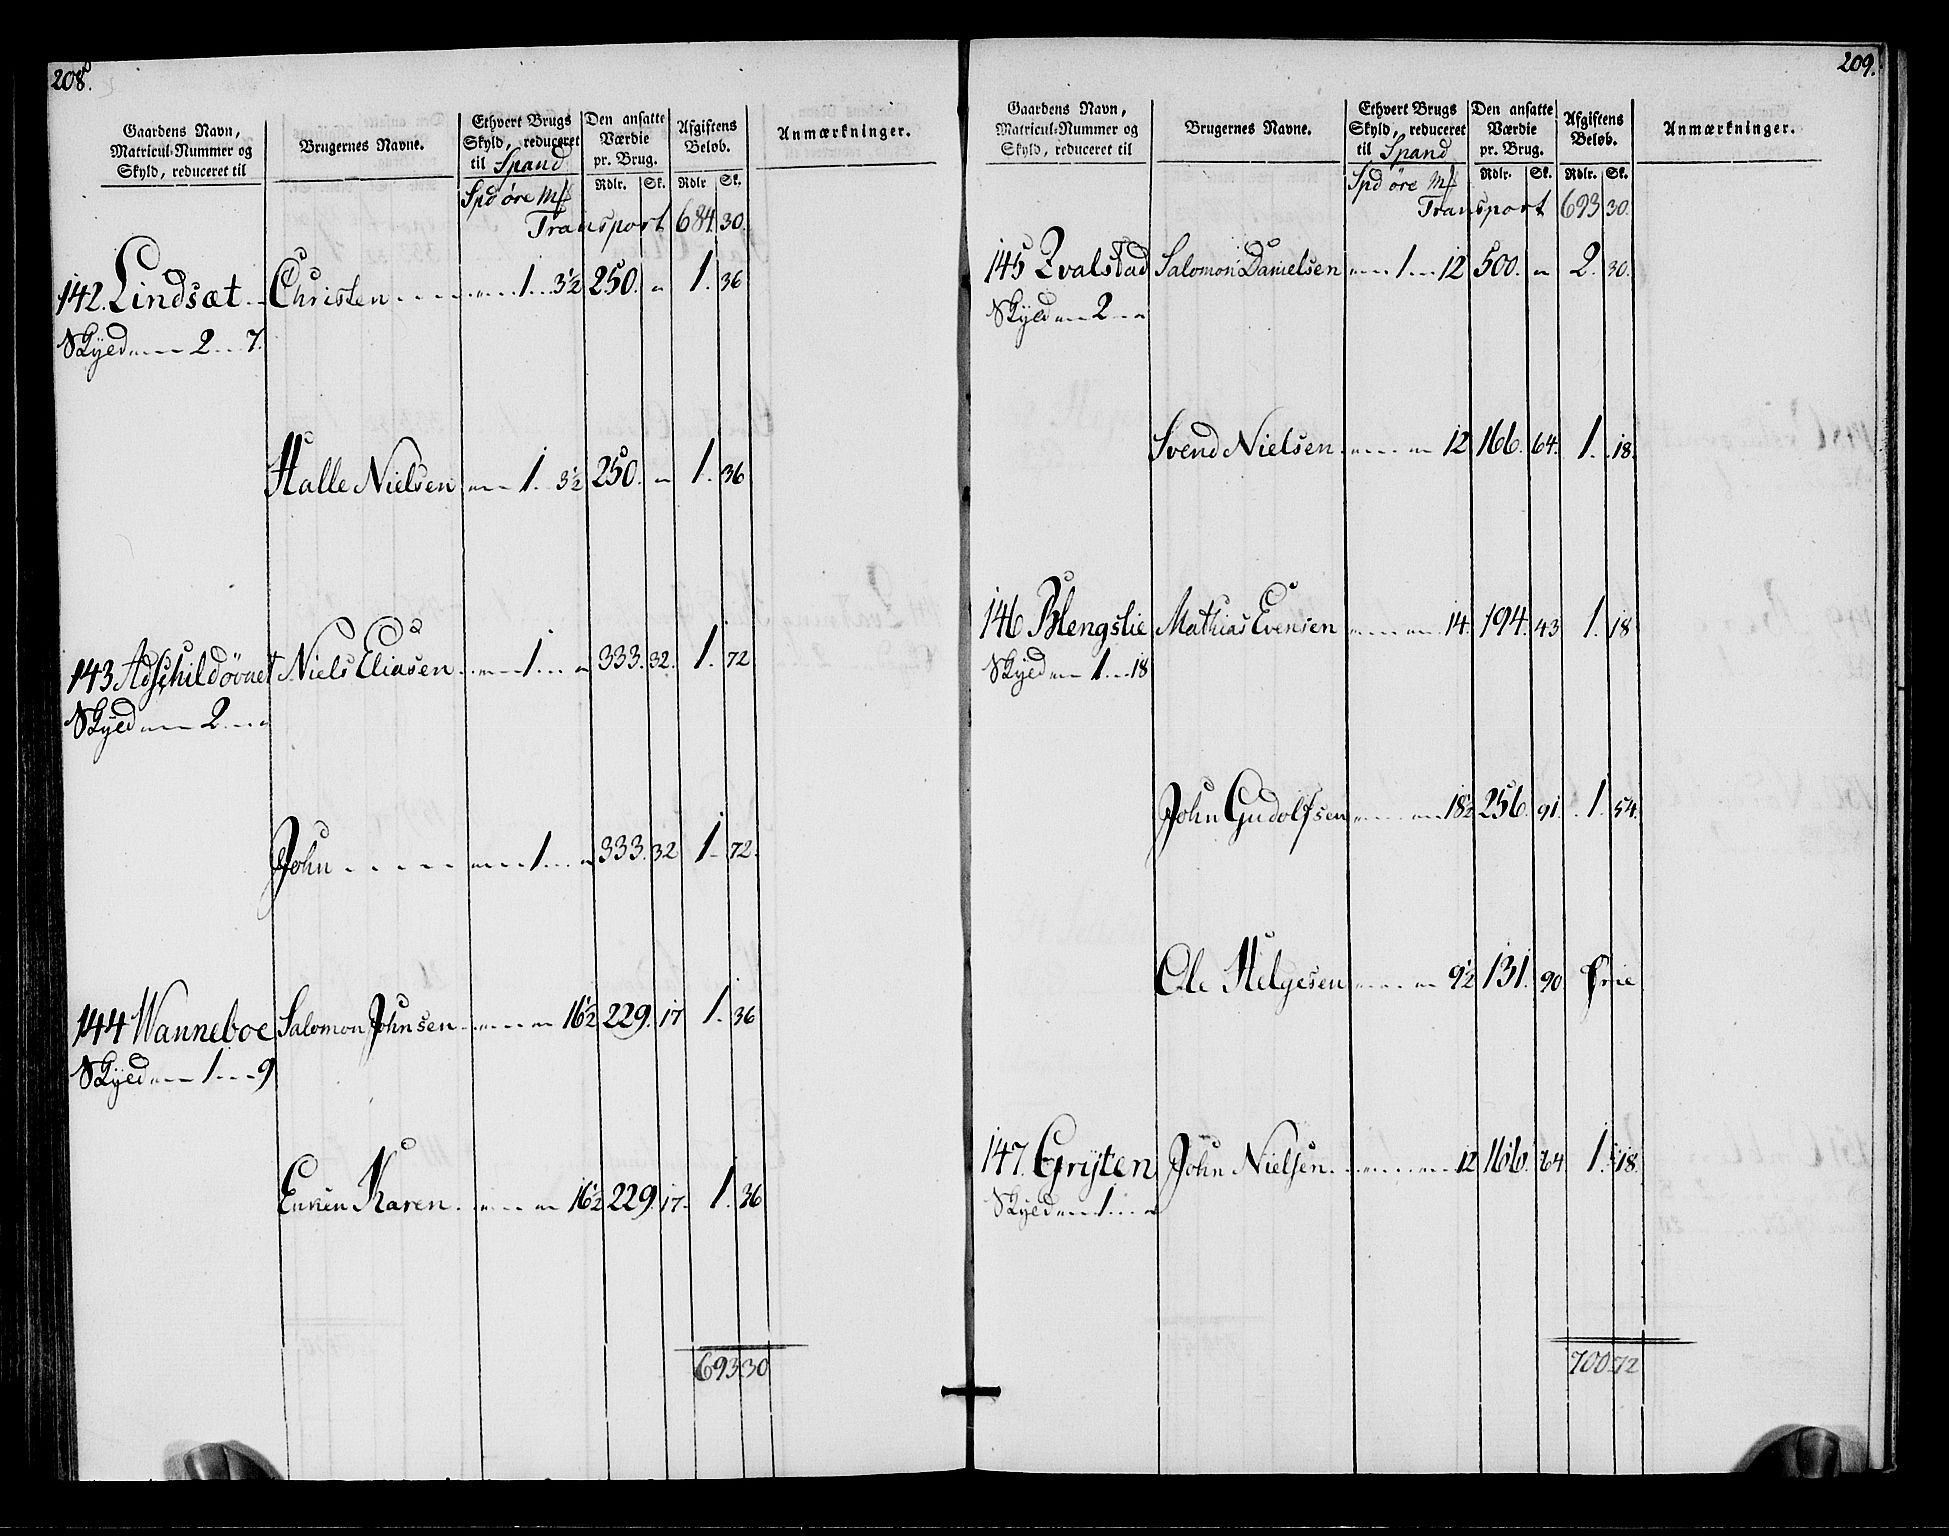 208.
Gaardens Navn, Matricul-Nummer og Skyld, reduceret til
Brugernes Navne.
Ethvert Brugs Skyld, reduceret til Spand
Den ansatte Værdie pr. Brug.
Afgiftens Beløb.
Anmærkninger.
Spd öre Mk Rdlr. Sk. Rdlr Sk.
Transport 684. 30.
142. Lindsæt Christen 1 3½ 250. " 1. 36
Skyld 2 7.
Halle Nielsen 1 3½ 250. " 1. 36
143 Adschildövnet Niels Eliasen 1 " 333. 32. 1. 72
Skyld 2 "
John 1 " 333. 32 1. 72.
144 Wanneboe Salomon Johnsen 16½ 229. 17 1. 36
Skyld 1 9
Enken Karen 16½ 229. 17. 1. 36
693 30
209.
Gaardens Navn, Matricul-Nummer og Skyld, reduceret til
Brugernes Navne.
Ethvert Brugs Skyld, reduceret til Spand
Den ansatte Værdie pr. Brug.
Afgiftens Beløb.
Anmærkninger.
Spd öre Mk Rdlr. Sk. Rdlr. Sk.
Transport 693 30.
145 Qvalstad Salomon Danielsen 1 12 500. " 2. 30.
Skyld 2 "
Svend Nielsen 12 166. 64. 1. 18.
146 Blengslie Mathias Evensen 14. 194. 43 1. 18
Skyld 1 18
John Gudolfsen 18½ 256. 91. 1. 54.
Ole Helgesen 9½ 131. 90 frie
147. Gryten John Nielsen 12 166. 64 1. 18.
Skyld 1 "
700. 72